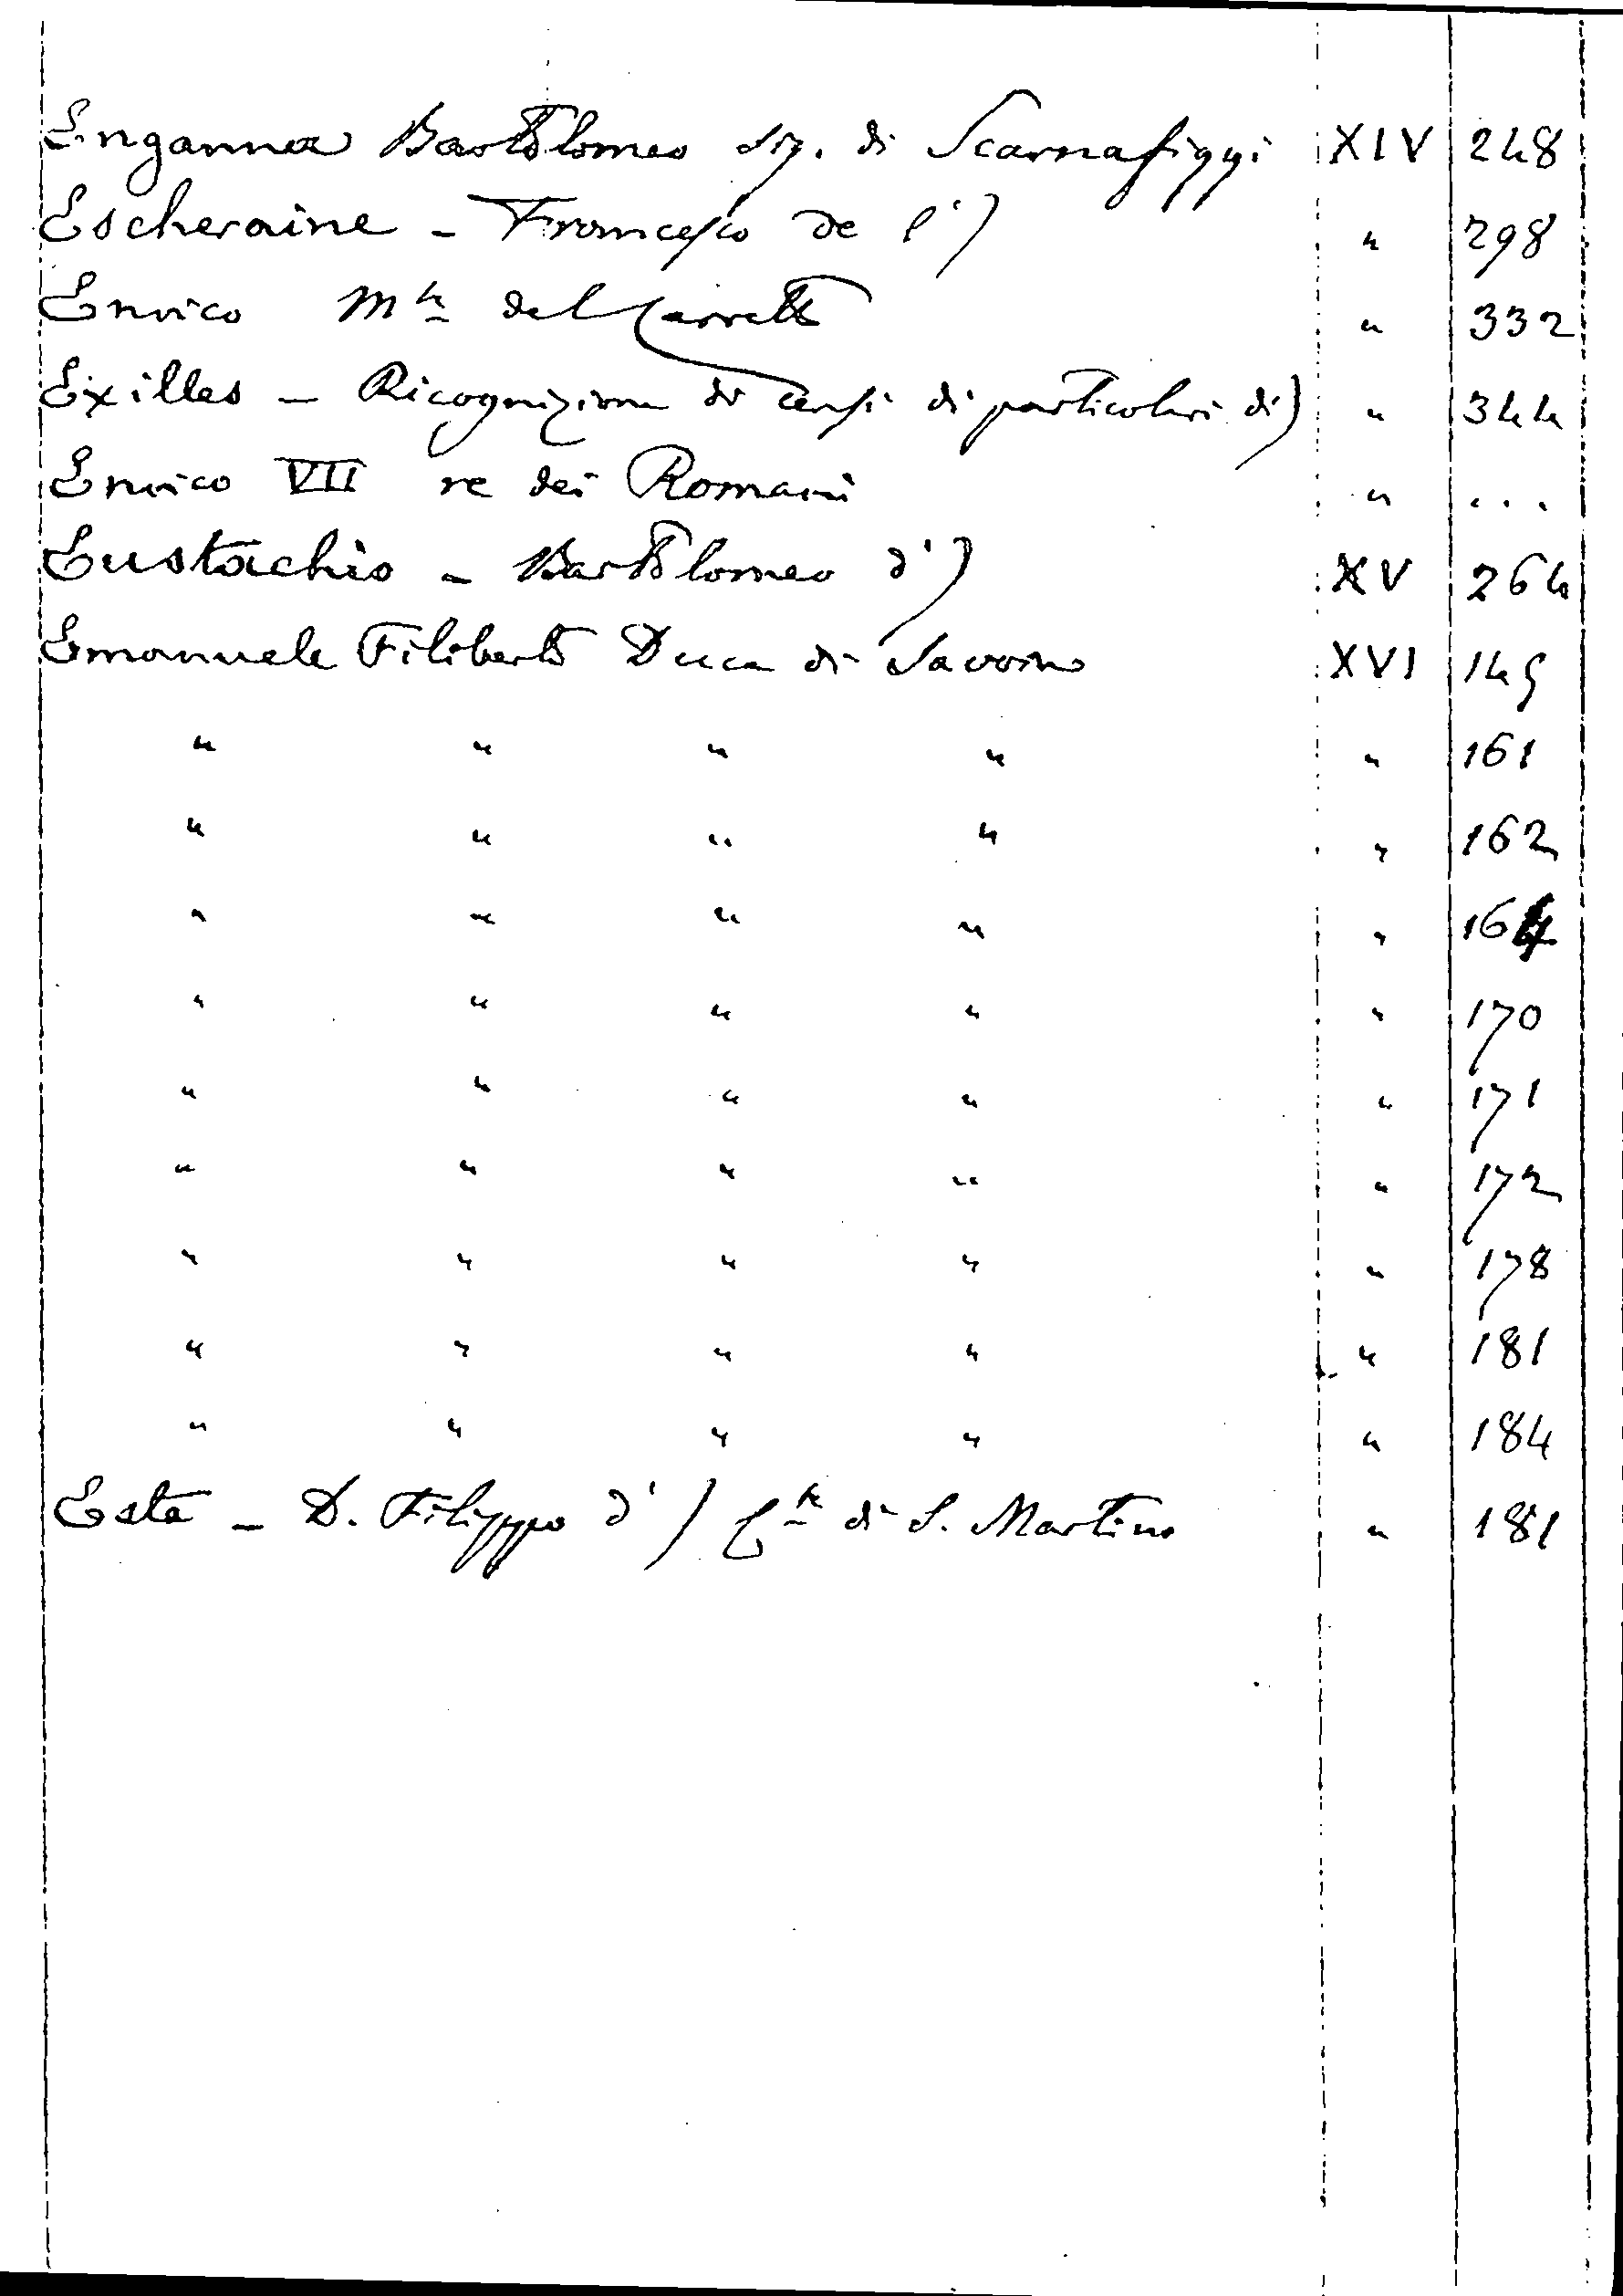 Enganna Bartolomeo sig. di Scarnafiggi XIV 248
Escheraine - Francesco de l') " 298
Enrico Mse del Carretto " 332
Exilles - Ricognizione di censi di particolari di) " 344
Enrico VII re dei Romani " ...
Eustachio - Bartolomeo d') XV 264
Emanuele Filiberto Duca di Savoia XVI 149
" " " " " 161
" " " " " 162
" " " " " 164
" " " " " 170
" " " " " 171
" " " " " 172
" " " " " 178
" " " " " 181
" " " " " 184
Este - D. Filippo d') di S. Martino " 181